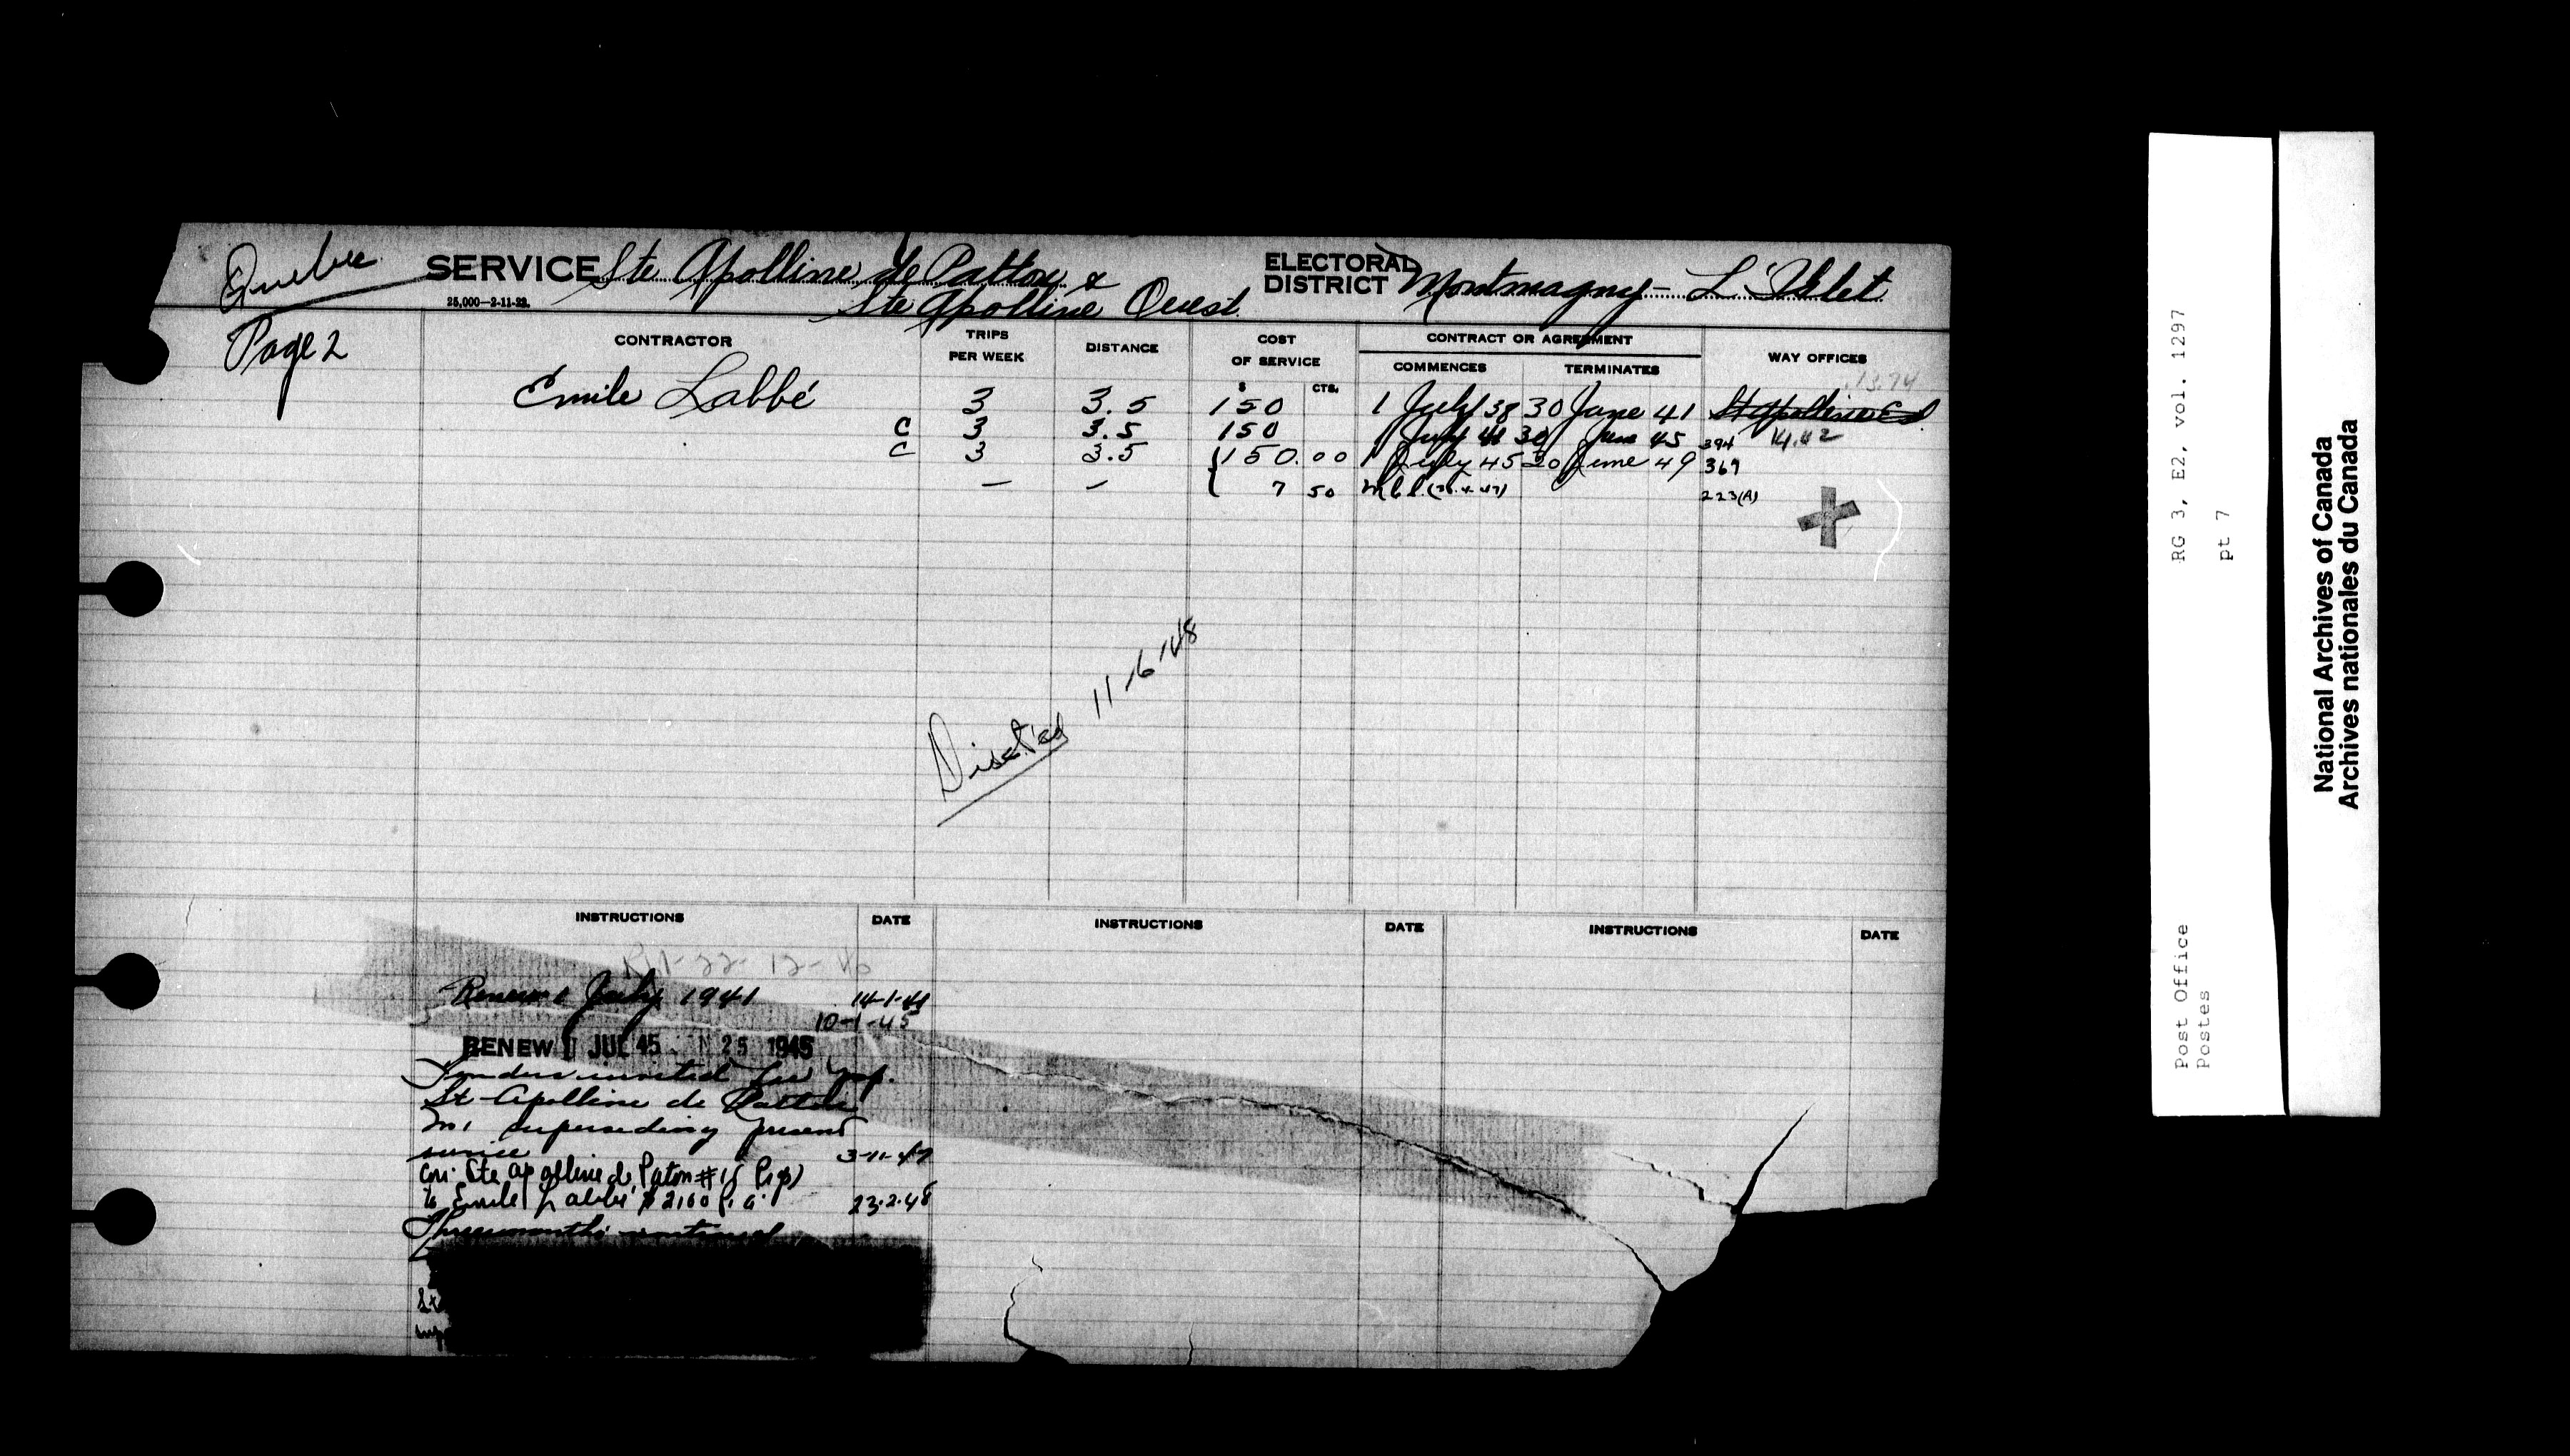 Quebec
SERVICE Ste Apolline de Patton &
Ste Apolline Ouest
25,000—2-11-22.
ELECTORAL DISTRICT Montmagny - L'Islet
Page 2
CONTRACTOR TRIPS PER WEEK DISTANCE COST OF SERVICE CONTRACT OR AGREEMENT WAY OFFICES
$ CTS. COMMENCES TERMINATES
13.74
Emile Labbé 3 3.5 150 1 July 38 30 June 41
C 3 3.5 150 1 July 41 30 June 45 394 14.42
C 3 3.5 150.00 1 July 45 30 June 49 369
— — 7 50 223(A)
Disct'ed 11/6/48
INSTRUCTIONS DATE INSTRUCTIONS DATE INSTRUCTIONS DATE
22-12-40
Renew 1 July 1941 14-1-41
10-1-45
RENEW 1 JUL 45 25 1945
Tenders invited for
St Apolline de Patton
superseding present
service 3-11-47
Ste Apolline de Paton #1
to Emile Labbé 23-2-48
Three months
National Archives of Canada
Archives nationales du Canada
RG 3, E2, vol. 1297
pt 7
Post Office
Postes